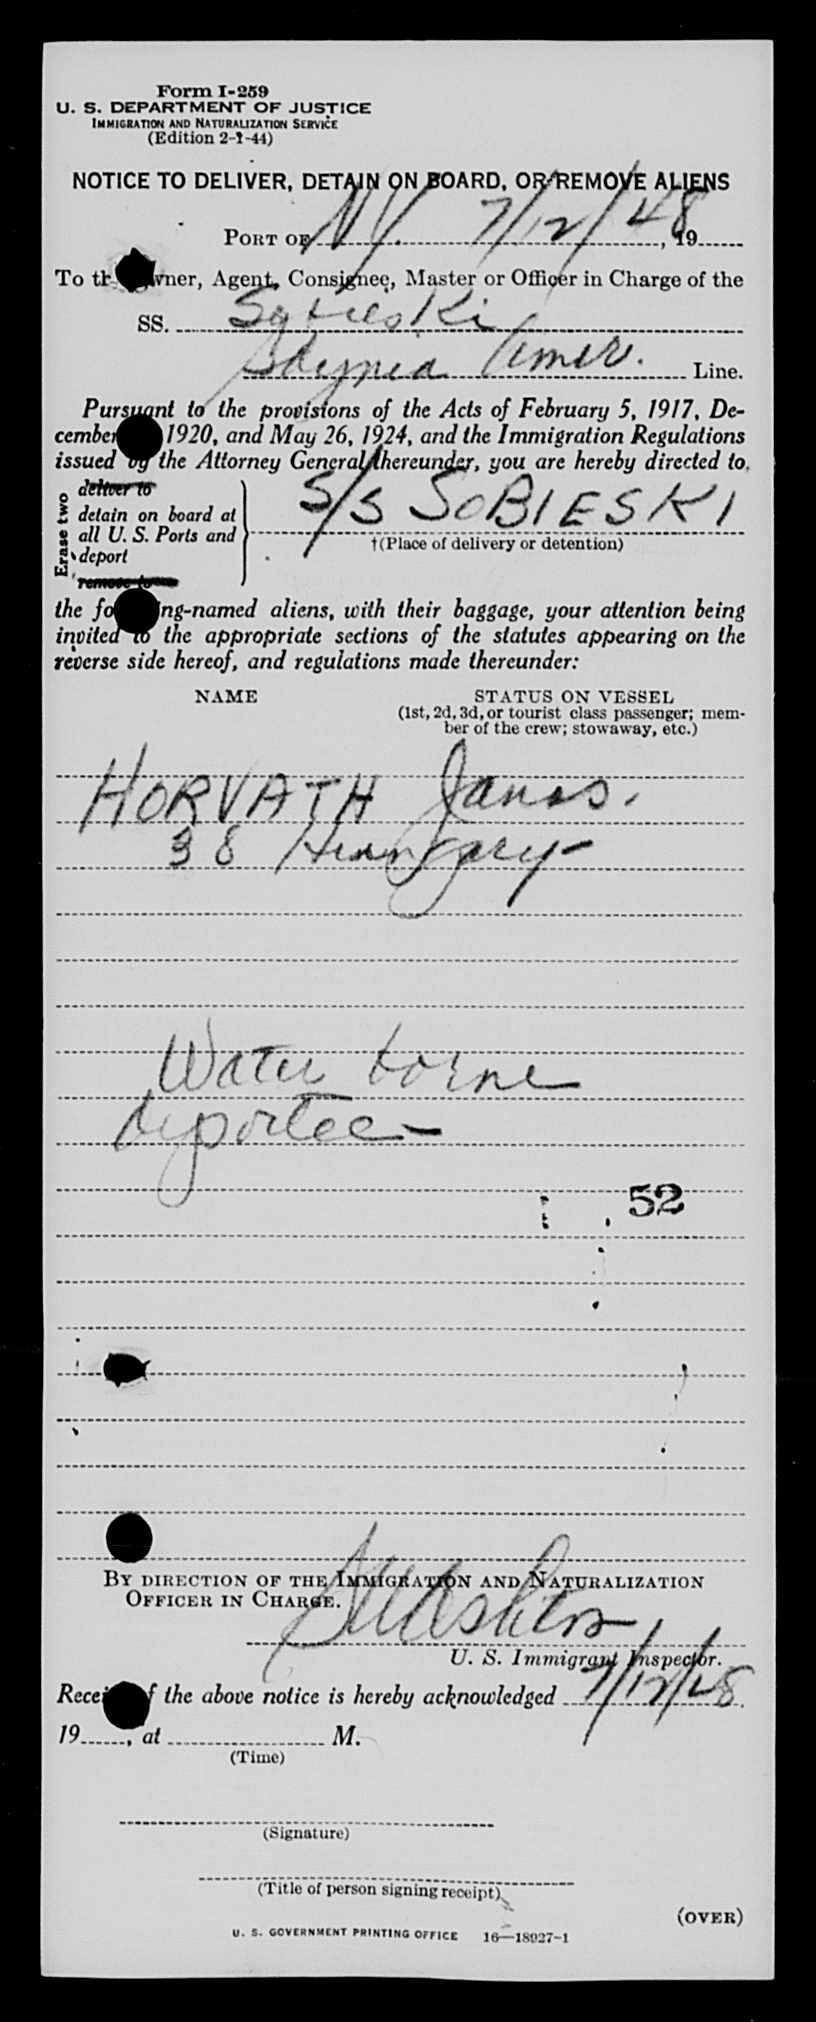 Form I-259
U. S. DEPARTMENT OF JUSTICE
IMMIGRATION AND NATURALIZATION SERVICE
(Edition 2-1-44)
NOTICE TO DELIVER, DETAIN ON BOARD, OR REMOVE ALIENS
PORT OF NY. 7/12/48, 19
To the Owner, Agent, Consignee, Master or Officer in Charge of the
SS. Sobieski
Gdynia Amer. Line.
Pursuant to the provisions of the Acts of February 5, 1917, De-
cember 1920, and May 26, 1924, and the Immigration Regulations
issued by the Attorney General thereunder, you are hereby directed to
Erase two
deliver to
detain on board at
all U. S. Ports and
deport
remove to
S/S SOBIESKI
†(Place of delivery or detention)
the following-named aliens, with their baggage, your attention being
invited to the appropriate sections of the statutes appearing on the
reverse side hereof, and regulations made thereunder:
NAME STATUS ON VESSEL
(1st, 2d, 3d, or tourist class passenger; mem-
ber of the crew; stowaway, etc.)
HORVATH Janos.
38 Hungary
Water borne
deportee
52
BY DIRECTION OF THE IMMIGRATION AND NATURALIZATION
OFFICER IN CHARGE.
U. S. Immigrant Inspector.
Receipt of the above notice is hereby acknowledged 7/12/48
19......, at M.
(Time)
(Signature)
(Title of person signing receipt)
(OVER)
U. S. GOVERNMENT PRINTING OFFICE 16—18027-1